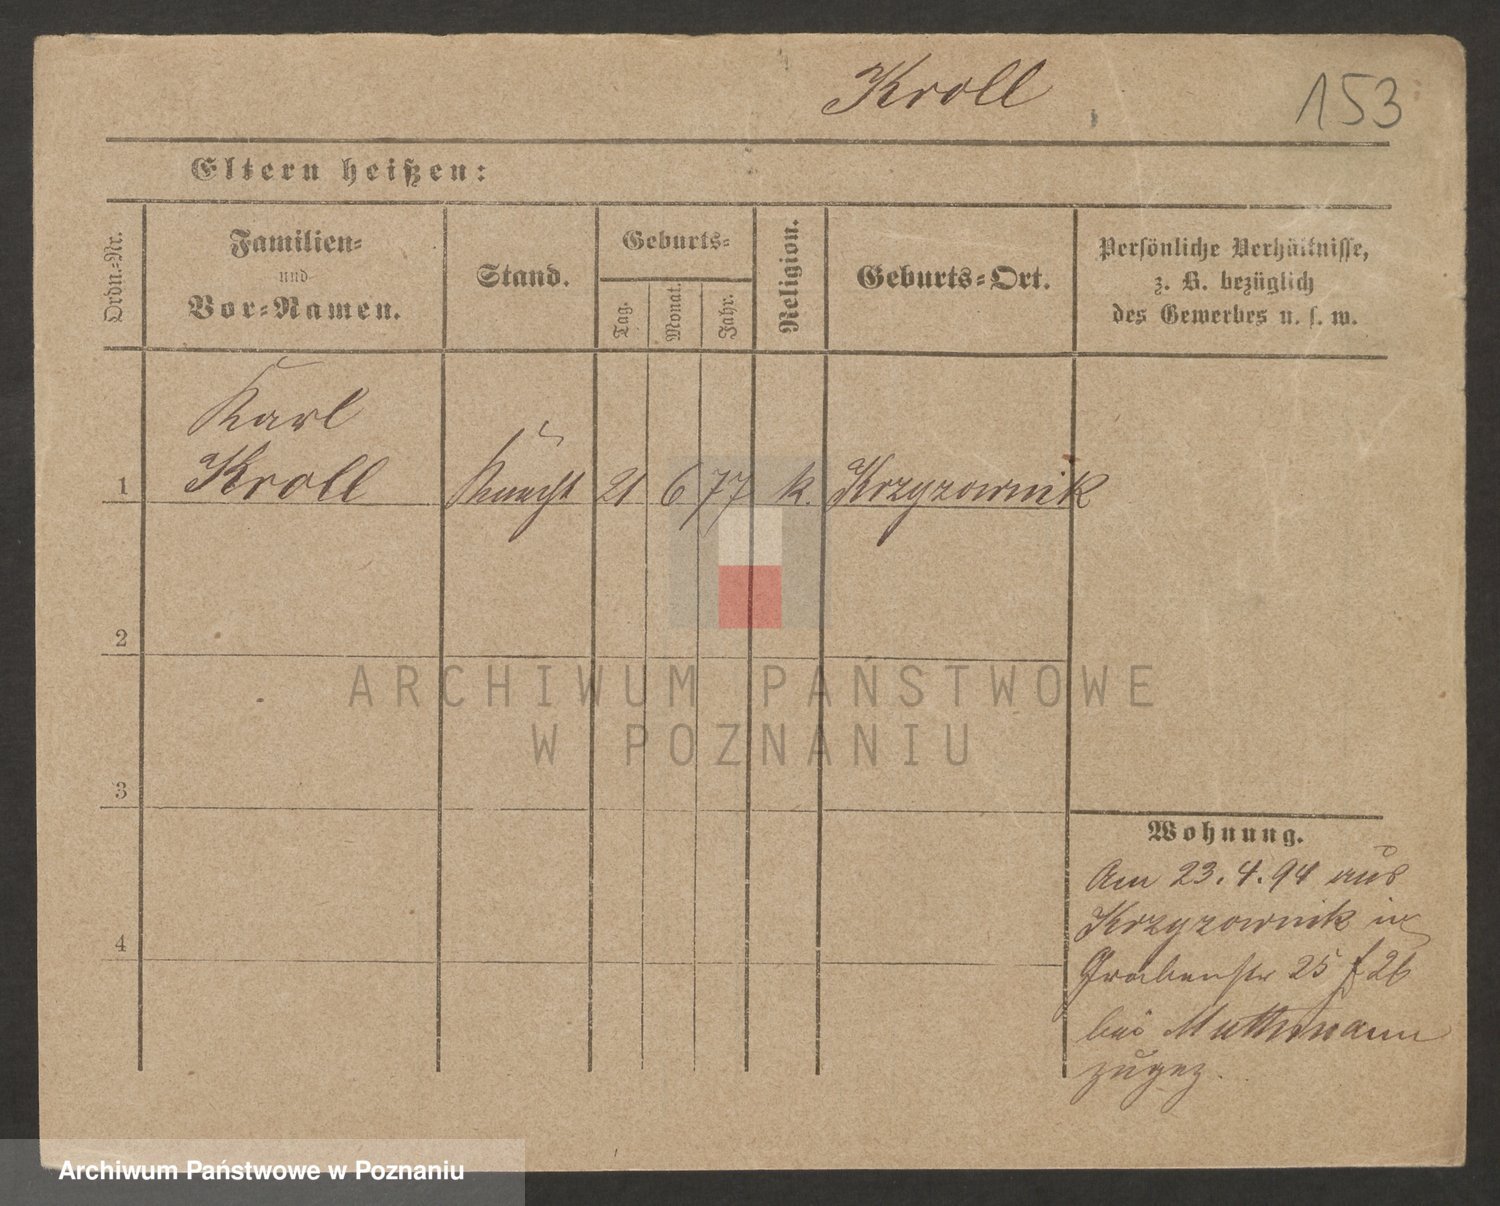 Kroll
153
Eltern heißen:
Ordn.-Nr.
Familien-
und
Vor-Namen.
Stand.
Geburts-
Tag.
Monat.
Jahr.
Religion.
Geburts-Ort.
Persönliche Verhältnisse,
z. B. bezüglich
des Gewerbes u. s. w.
Karl
1 Kroll Knecht 21 6 77 k. Krzyzownik
2
3
4
ARCHIWUM PAŃSTWOWE
W POZNANIU
Wohnung.
Am 23.4.94 aus
Krzyzownik in
Grabenstr 25 f 26
bei Muthmann
zugez.
Archiwum Państwowe w Poznaniu